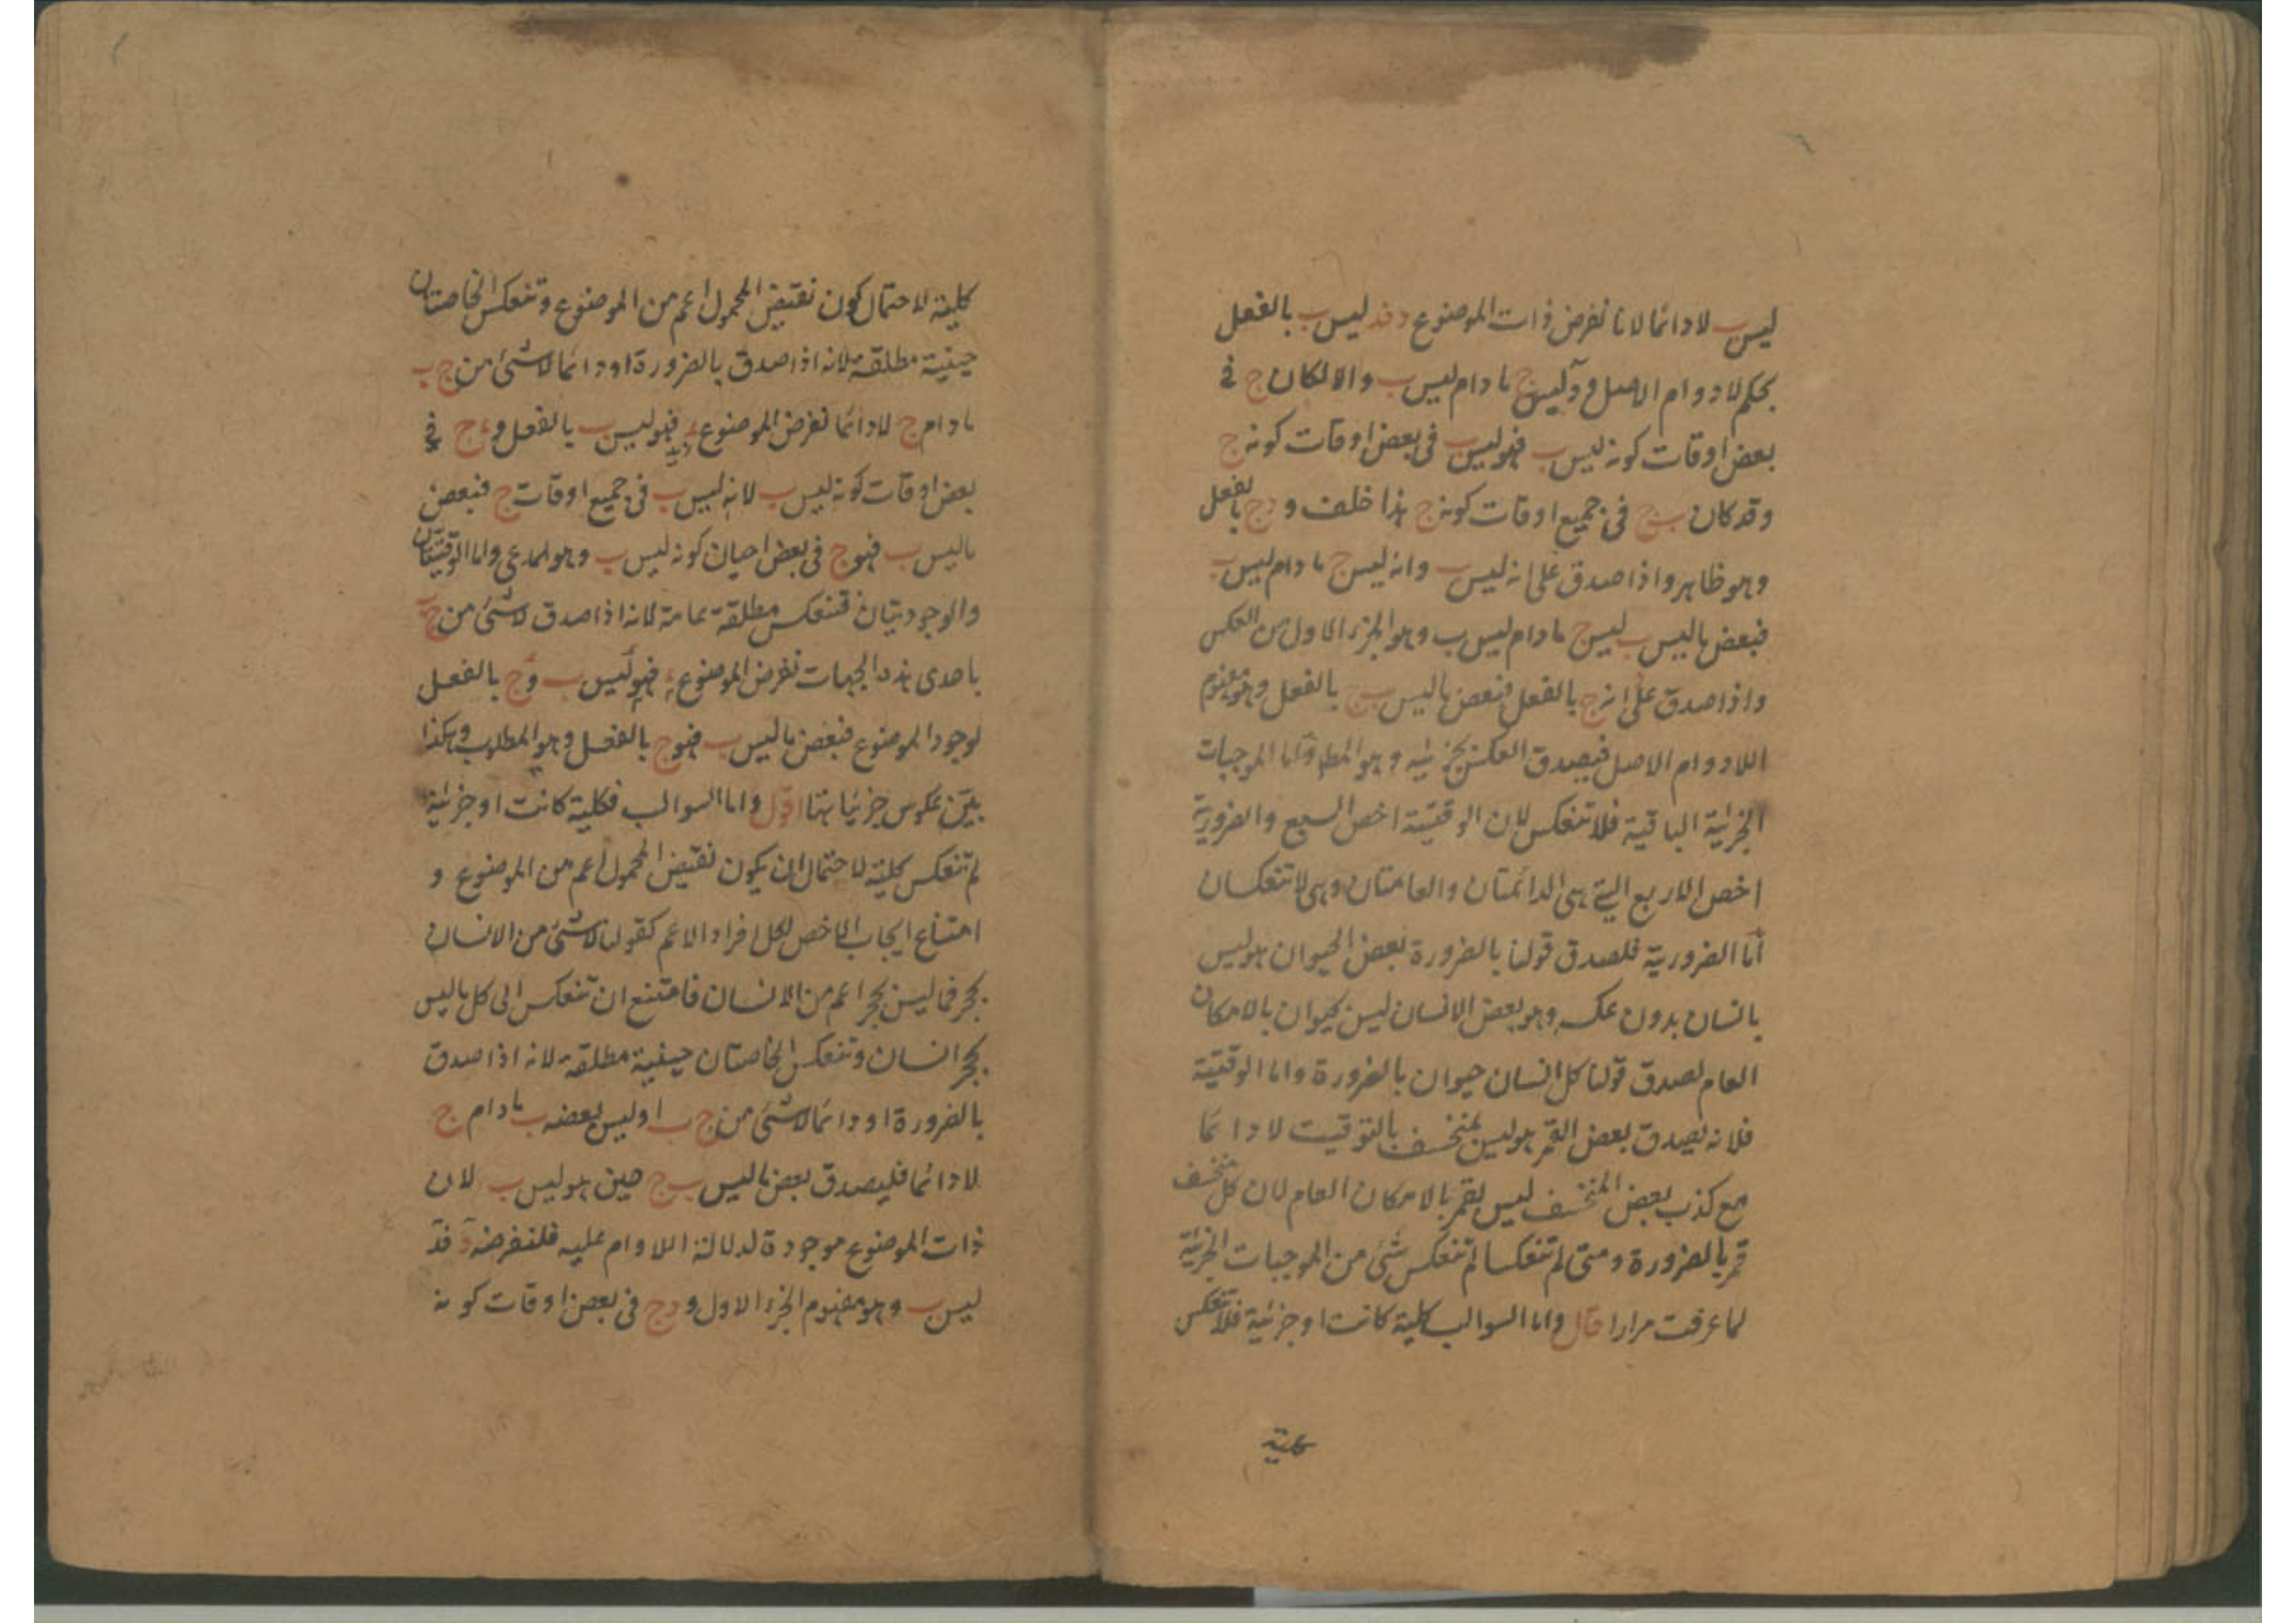 ليس ب لا دائما لانا نفرض ذات الموضوع د فد ليس ب بالفعل
بحكم لادوام الاصل ود ليس ج ما دام ليس ب والا لكان ج فى
بعض اوقات كونه ليس ب فهو ليس ب فى بعض اوقات كونه ج
وقد كان ب ج فى جميع اوقات كونه ج هذا خلف و د ج بالفعل
وهو ظاهر واذا صدق على انه ليس ب وانه ليس ج ما دام ليس ب
فبعض ما ليس ب ليس ج ما دام ليس ب وهو الجزء الاول من العكس
واذا صدق على انه ج بالفعل فبعض ما ليس ب ج بالفعل وهو مفهوم
اللادوام الاصل فيصدق العكس بجزئيه وهو المط واما الموجبات
الجزئية الباقية فلا تنعكس لان الوقتية اخص السبع والضرورية
اخص الاربع التى هى الدائمتان والعامتان وهى لا تنعكسان
أما الضرورية فلصدق قولنا بالضرورة بعض الحيوان هو ليس
بانسان بدون عكسه وهو بعض الانسان ليس بحيوان بالامكان
العام لصدق قولنا كل انسان حيوان بالضرورة واما الوقتية
فلانه يصدق بعض القمر هو ليس بمنخسف بالتوقيت لا دائما
مع كذب بعض المنخسف ليس بقمر بالامكان العام لان كل منخسف
قمر بالضرورة ومتى لم تنعكسا لم تنعكس شئ من الموجبات الجزئية
لما عرفت مرارا قال واما السوالب كلية كانت او جزئية فلا تنعكس
كلية
كلية لاحتمال كون نقيض المحمول اعم من الموضوع وتنعكس الخاصتان
حينية مطلقة لانه اذا صدق بالضرورة او دائما لا شئ من ج ب
ما دام ج لا دائما نفرض الموضوع د فهو ليس ب بالفعل و د ج فى
بعض اوقات كونه ليس ب لانه ليس ب فى جميع اوقات ج فبعض
ما ليس ب فهو ج فى بعض احيان كونه ليس ب وهو المدعى واما الوقتيتان
والوجوديتان فتنعكس مطلقة عامة لانه اذا صدق لا شئ من ج ب
باحدى هذه الجهات نفرض الموضوع د فهو ليس ب و ج بالفعل
لوجود الموضوع فبعض ما ليس ب فهو ج بالفعل وهو المطلوب وهكذا
بين عكوس جزئياتها اقول واما السوالب فكلية كانت او جزئية
لم تنعكس كلية لاحتمال ان يكون نقيض المحمول اعم من الموضوع و
امتناع ايجاب الاخص لكل افراد الاعم كقولنا لا شئ من الانسان
بحجر فما ليس بحجر اعم من الانسان فامتنع ان تنعكس الى كل ما ليس
بحجر انسان وتنعكس الخاصتان حينية مطلقة لانه اذا صدق
بالضرورة او دائما لا شئ من ج ب او ليس بعضه ب ما دام ج
لا دائما فليصدق بعض ما ليس ب ج حين هو ليس ب لان
ذات الموضوع موجودة لدلالة اللادوام عليه فلنفرضه د فد
ليس ب وهو مفهوم الجزء الاول و د ج فى بعض اوقات كونه